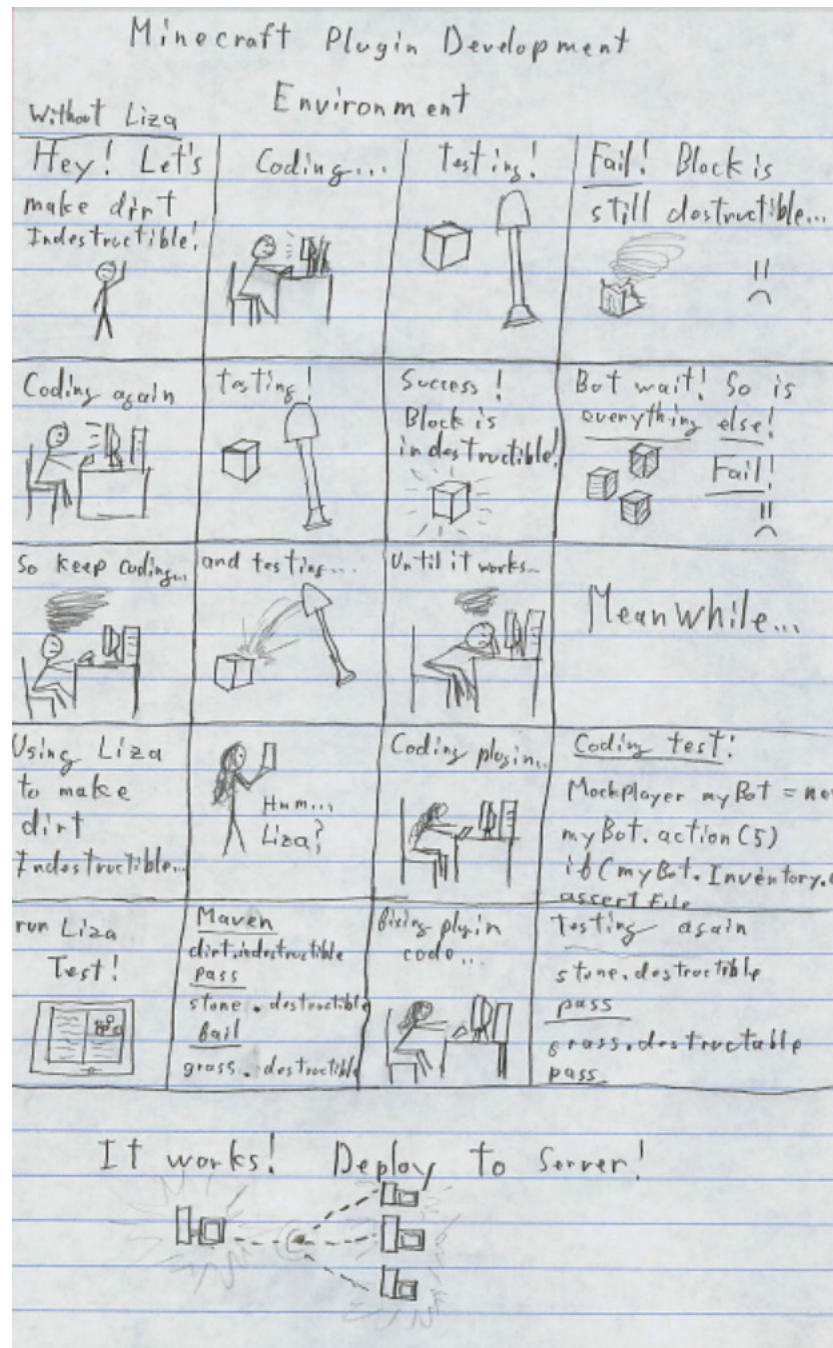 Minecraft Plugin Development
Environment
Without Liza
Hey! Let's
make dirt
Indestructible!
Coding...
Testing!
Fail! Block is
still destructible...
Coding again
testing!
Success!
Block is
indestructible!
But wait! So is
everything else!
Fail!
So keep coding...
and testing...
Until it works...
Meanwhile...
Using Liza
to make
dirt
Indestructible...
Hmm...
Liza?
Coding plugin...
Coding test!
Mockplayer myBot = new
myBot.action(5)
if(myBot.Inventory.
assert File
run Liza
Test!
Maven
dirt.indestructible
pass
stone.destructible
fail
grass.destructible
fixing plugin
code...
Testing again
stone.destructible
pass
grass.destructable
pass
It works! Deploy to Server!